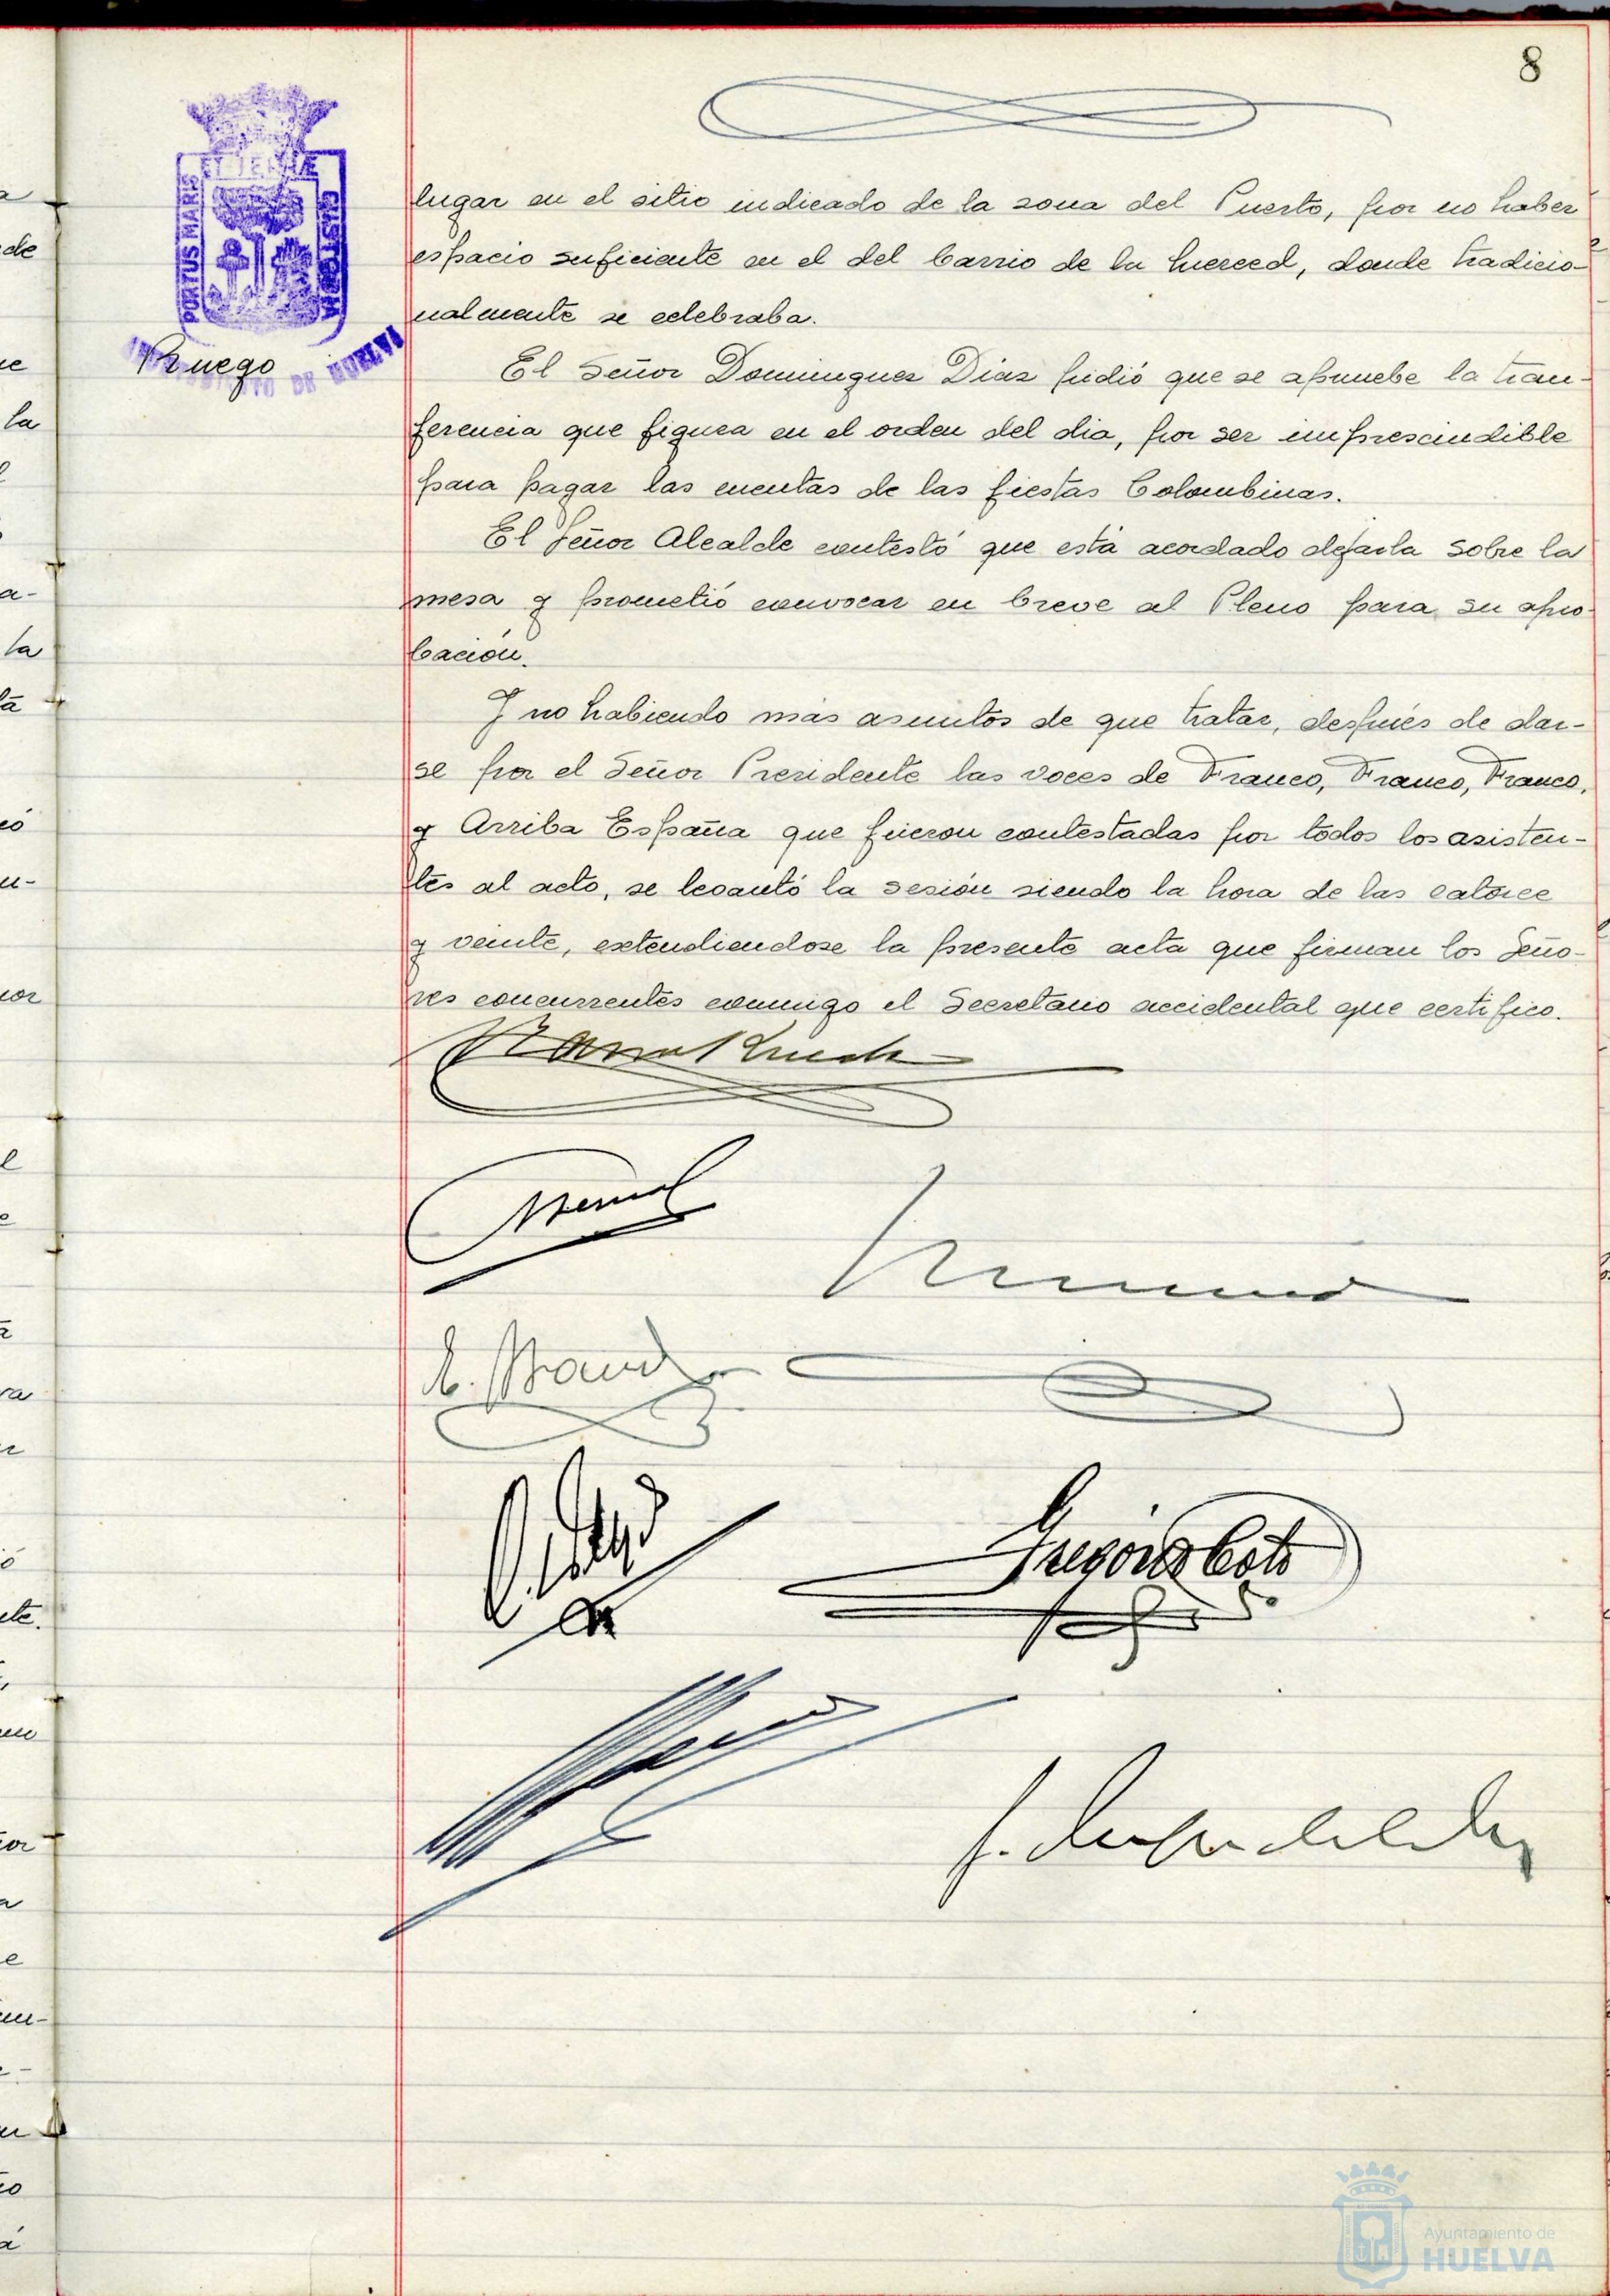 8
PORTUS MARIS
ET TERRÆ
CUSTODIA
AYUNTAMIENTO DE HUELVA
lugar en el sitio indicado de la zona del Puerto, por no haber
espacio suficiente en el del barrio de la Merced, donde tradicio-
nalmente se celebraba.
Ruego
El Señor Dominguez Diaz pidió que se apruebe la tran-
ferencia que figura en el orden del dia, por ser imprescindible
para pagar las cuentas de las fiestas Colombinas.
El Señor Alcalde contestó que está acordado dejarla sobre la
mesa y prometió convocar en breve al Pleno para su apro-
bación.
Y no habiendo más asuntos de que tratar, después de dar-
se por el Señor Presidente las voces de Franco, Franco, Franco,
y Arriba España que fueron contestadas por todos los asisten-
tes al acto, se levantó la sesión siendo la hora de las catorce
y veinte, extendiendose la presente acta que firman los Seño-
res concurrentes conmigo el Secretario accidental que certifico.
Gregorio Coto
Ayuntamiento de
HUELVA